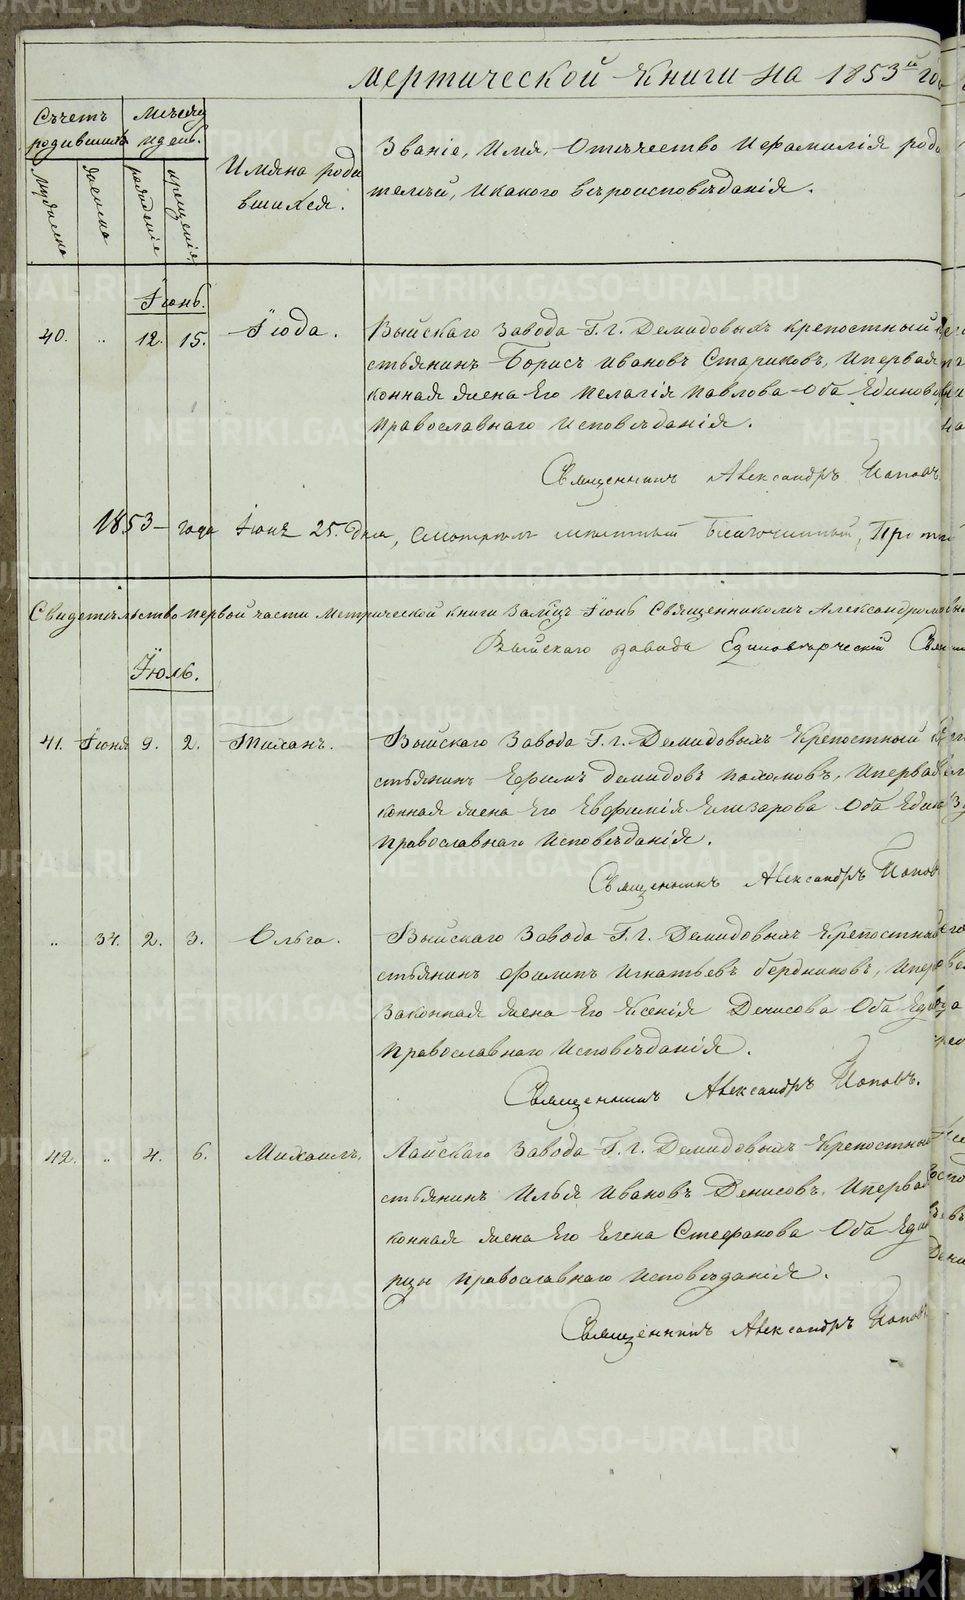 мертической книги на 1853й го
Съчетъ родившихъ
Месяц и день.
Имяна роди
вшихся.
Званіе, Имя, Отъчество Ифамилія роди
телъй, Икакого веъроисповъданія.
мужеска
женска
рожденіе
крещеніе
Їюнь.
40. „ 12. 15. Їюда. Выйскаго Завода Г. г. Демидовыхъ крепостный
стьянинъ Борисъ Ивановъ Стариковъ, Иперва
конная жена Его Пелагія Павлова Оба Единов
Православнаго Исповъданія.
Священникъ Александръ Поповъ
1853 года Їюня 25. дня, Смотрелъ местный Благочинный, Прот
Свидетельство первой части Метрической книги За Їюнь Священникомъ Александромъ
Выйскаго завода Единоверческій Свя
Їюль.
41. Їюня 9. 2. Тиханъ. Выйскаго Завода Г. г. Демидовыхъ Крепостный
стьянинъ Ефимъ Демидовъ Пахомовъ, Иперва
конная жена Его Евфимія Елизарова Оба Един
Православнаго Исповъданія.
Священникъ Александръ Попов
„ 34. 2. 3. Ольга. Выйскаго Завода Г. г. Демидовыхъ Крепостный
стьянинъ Филипъ Игнатьевъ Бердниковъ, Иперв
Законная жена Его Ксенія Денисова Оба Един
Православнаго Исповъданія.
Священникъ Александръ Поповъ.
42. „ 4. 6. Михаилъ, Лайскаго Завода Г. г. Демидовыхъ Крепостный
стьянинъ Илья Ивановъ Денисовъ, Иперва
конная жена Его Елена Стефанова Оба Еди
рцы Православнаго Исповъданія.
Священникъ Александръ Попов
METRIKI.GASO-URAL.RU